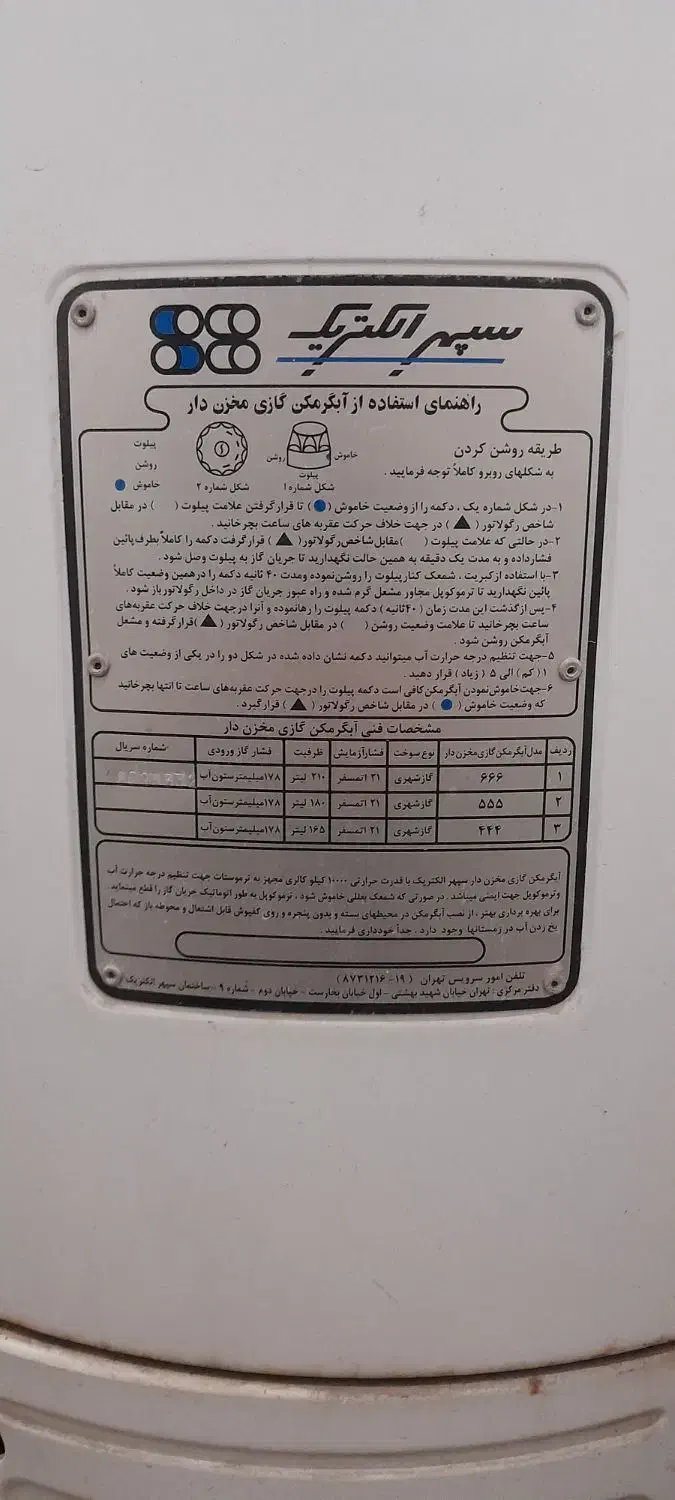 سپهر الکتریک
راهنمای استفاده از آبگرمکن گازی مخزن دار
طریقه روشن کردن
به شکلهای روبرو کاملاً توجه فرمایید .
خاموش
روشن
پیلوت
شکل شماره ۱
شکل شماره ۲
پیلوت
روشن
خاموش
۱-در شکل شماره یک ، دکمه را از وضعیت خاموش ( ) تا قرار گرفتن علامت پیلوت ( ) در مقابل
شاخص رگولاتور ( ▲ ) در جهت خلاف حرکت عقربه های ساعت بچرخانید .
۲-در حالتی که علامت پیلوت ( ) مقابل شاخص رگولاتور ( ▲ ) قرار گرفت دکمه را کاملاً بطرف پائین
فشار داده و به مدت یک دقیقه به همین حالت نگهدارید تا جریان گاز به پیلوت وصل شود .
۳-با استفاده از کبریت ، شمعک کنار پیلوت را روشن نموده و مدت ۴۰ ثانیه دکمه را در همین وضعیت کاملاً
پائین نگهدارید تا ترموکوپل مجاور مشعل گرم شده و راه عبور جریان گاز در داخل رگولاتور باز شود .
۴-پس از گذشت این مدت زمان ( ۴۰ ثانیه ) دکمه پیلوت را رها نموده و آنرا در جهت خلاف حرکت عقربه های
ساعت بچرخانید تا علامت وضعیت روشن ( ) در مقابل شاخص رگولاتور ( ▲ ) قرار گرفته و مشعل
آبگرمکن روشن شود .
۵-جهت تنظیم درجه حرارت آب میتوانید دکمه نشان داده شده در شکل دو را در یکی از وضعیت های
۱ ( کم ) الی ۵ ( زیاد ) قرار دهید .
۶-جهت خاموش نمودن آبگرمکن کافی است دکمه پیلوت را در جهت حرکت عقربه های ساعت تا انتها بچرخانید
که وضعیت خاموش ( ) در مقابل شاخص رگولاتور ( ▲ ) قرار گیرد .
مشخصات فنی آبگرمکن گازی مخزن دار
ردیف مدل آبگرمکن گازی مخزن دار نوع سوخت فشار آزمایش ظرفیت فشار گاز ورودی شماره سریال
۱ ۶۶۶ گاز شهری ۲۱ اتمسفر ۲۱۰ لیتر ۱۷۸ میلیمتر ستون آب
۲ ۵۵۵ گاز شهری ۲۱ اتمسفر ۱۸۰ لیتر ۱۷۸ میلیمتر ستون آب
۳ ۴۴۴ گاز شهری ۲۱ اتمسفر ۱۶۵ لیتر ۱۷۸ میلیمتر ستون آب
آبگرمکن گازی مخزن دار سپهر الکتریک با قدرت حرارتی ۱۰۰۰۰ کیلو کالری مجهز به ترموستات جهت تنظیم درجه حرارت آب
و ترموکوپل جهت ایمنی میباشد . در صورتی که شمعک بعللی خاموش شود ، ترموکوپل به طور اتوماتیک جریان گاز را قطع مینماید .
برای بهره برداری بهتر ، از نصب آبگرمکن در محیطهای بسته و بدون پنجره و روی کفپوش قابل اشتعال و محوطه باز که احتمال
یخ زدن آب در زمستانها وجود دارد ، جداً خودداری فرمایید .
تلفن امور سرویس تهران ( ۱۹ - ۸۷۳۱۲۱۶ )
دفتر مرکزی : تهران خیابان شهید بهشتی - اول خیابان بخارست - خیابان دوم - شماره ۹ - ساختمان سپهر الکتریک